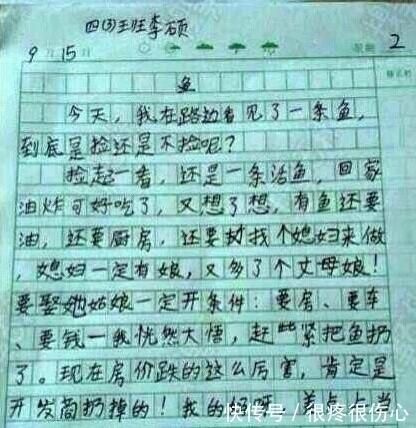 四(3)班 李硕
9月15日 星期2
鱼
今天,我在路边看见了一条鱼,
到底是捡还是不捡呢?
捡起一看,还是一条活鱼,回家
油炸可好吃了,又想了想,有鱼还要
油,还要厨房,还要找个媳妇来做
,媳妇一定有娘,又多了个丈母娘!
要娶她姑娘一定开条件:要房、要车
、要钱一我恍然大悟,赶紧把鱼扔
了。现在房价跌的这么厉害,肯定是
开发商扔掉的!我的好呀,差点上当
快传号/很疼很伤心